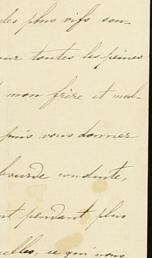 les plus vifs sou-
ur toutes les peines
mon frère et mal-
puis vous donner
lourde conduite,
nt pendant plus
uelles, ce qui nous